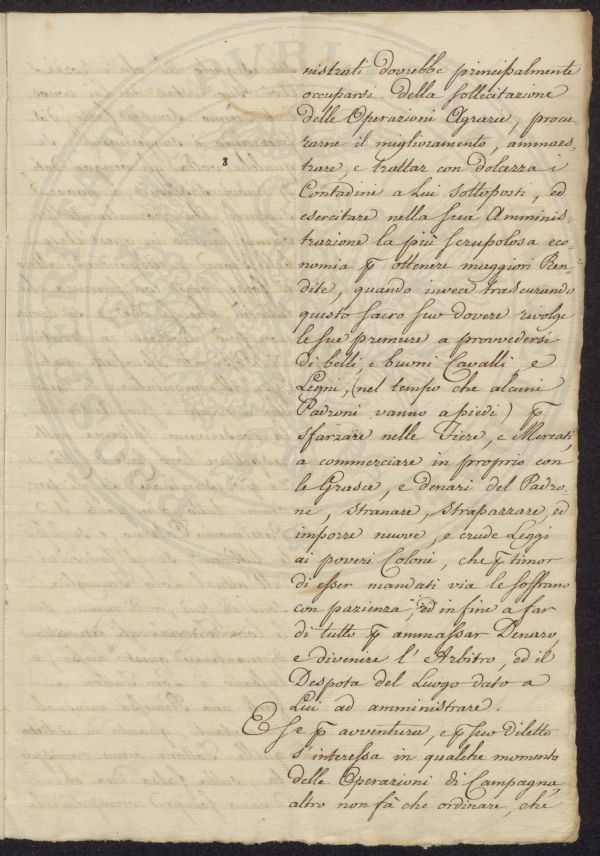 nistrati dovrebbe principalmente
occuparsi della sollecitazione
delle Operazioni Agrarie, procu-
rarne il miglioramento, ammaes-
trare, e trattar con dolcezza i
8
Contadini a Lui sottoposti, ed
esercitare nella sua Amminis-
trazione la più scrupolosa eco-
nomia ꝑ ottenere maggiori Ren-
dite, quando invece trascurando
questo sacro suo dovere rivolge
le sue premure a provvedersi
di belli, e buoni Cavalli, e
Legni, (nel tempo che alcuni
Padroni vanno a piedi) ꝑ
sfarzare nelle Fiere, e Mercati,
a commerciare in proprio con
le Grasce, e denari del Padro-
ne, stranare, strapazzare, ed
imporre nuove, e crude Leggi
ai poveri Coloni, che ꝑ timor
di esser mandati via le soffrano
con pazienza, ed in fine a far
di tutto ꝑ ammassar Denaro,
e divenire l'Arbitro, ed il
Despota del Luogo dato a
Lui ad amministrare.
E se ꝑ avventura, e ꝑ suo diletto
s'interessa in qualche momento
delle Operazioni di Campagna,
altro non fà che ordinare, che